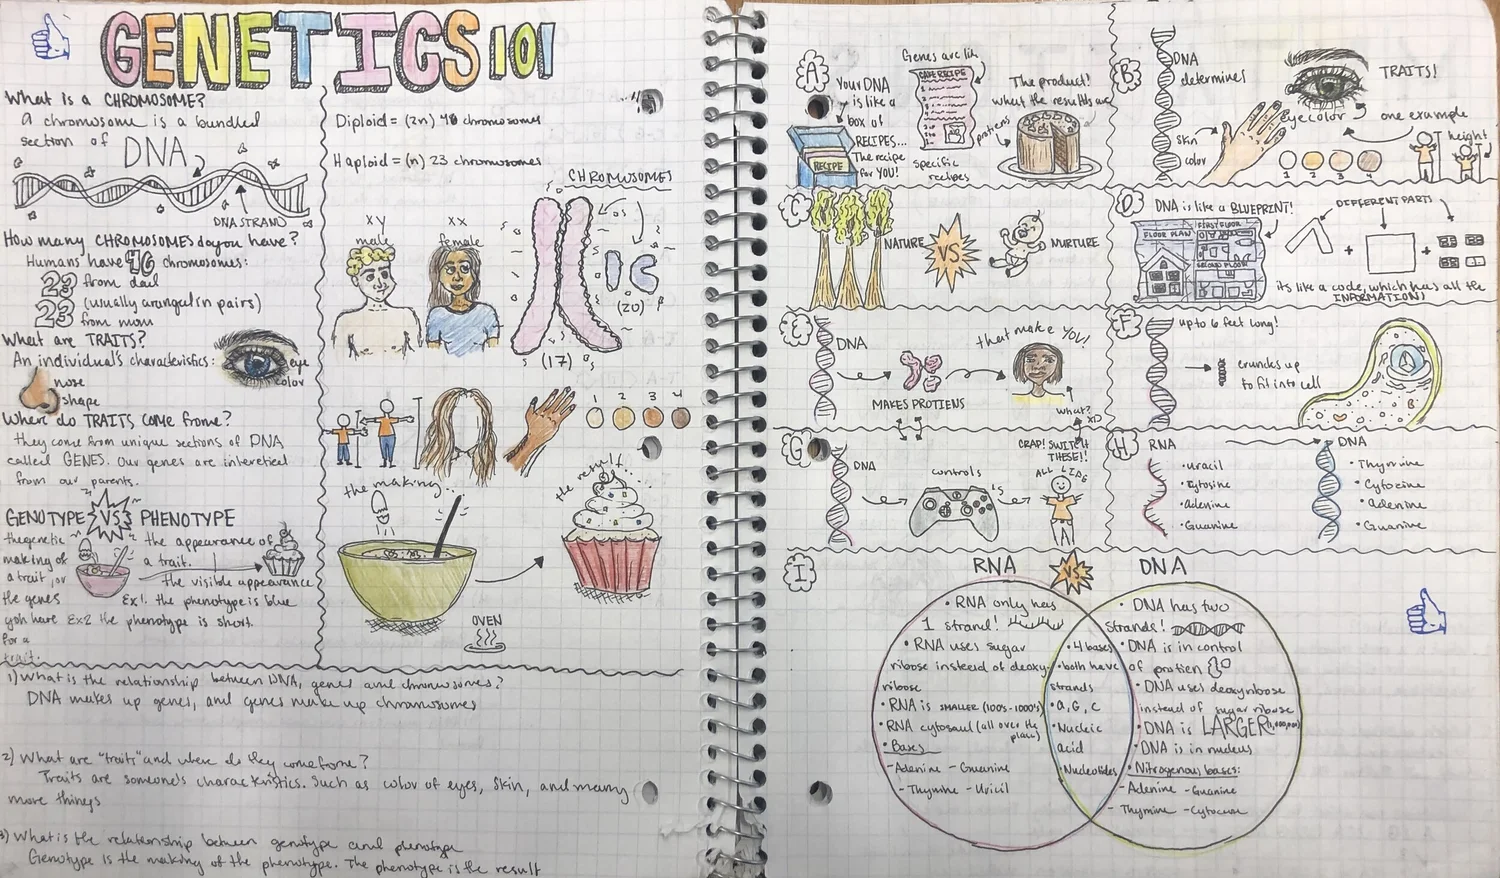 GENETICS 101
What is a CHROMOSOME?
a chromosome is a bundled
section of DNA
DNA STRAND
How many CHROMOSOMES do you have?
Humans have 46 chromosomes:
23 from dad
(usually arranged in pairs)
23 from mom
What are TRAITS?
An individual's characteristics:
eye
color
nose
shape
Where do TRAITS come frome?
they come from unique sections of DNA
called GENES. Our genes are interetied
from our parents.
GENOTYPE VS PHENOTYPE
the genetic
making of
a trait, or
the genes
you have
for a
trait.
the appearance of
a trait.
the visible appearance
Ex1. the phenotype is blue
Ex2 the phenotype is short.
Diploid = (2n) 46 chromosomes
Haploid = (n) 23 chromosomes
CHROMUSOMES
xy
male
xx
female
(17)
(20)
1 2 3 4
the making...
the result...
OVEN
1) What is the relationship between DNA, genes and chromosomes?
DNA makes up genes, and genes make up chromosomes
2) What are "traits" and where do they come frome?
Traits are someone's characteristics. Such as color of eyes, skin, and many
more things
3) What is the relationship between genotype and phenotype
Genotype is the making of the phenotype. The phenotype is the result
A
Your DNA
is like a
box of
RECIPES...
The recipe
for YOU!
RECIPE
Genes are like
CAKE RECIPE
specific
recipes
The product!
what the results are
protiens
B
DNA
determines
TRAITS!
eyecolor
one example
skin
color
1 2 3 4
height
C
NATURE VS NURTURE
D
DNA is like a BLUEPRINT!
FLOOR PLAN
FIRST FLOOR
SECOND FLOOR
DIFFERENT PARTS
+ +
its like a code, which has all the
INFORMATION)
E
DNA
MAKES PROTIENS
that make YOU!
what?
XD
F
up to 6 feet long!
crunches up
to fit into cell
G
DNA
controls
CRAP! SWITCH
THESE!!
H
RNA
• uracil
• Cytosine
• Adenine
• Guanine
DNA
• Thymine
• Cytozine
• adenine
• Guanine
I
RNA VS DNA
• RNA only has
1 strand!
• RNA uses sugar
ribose instead of deoxy-
ribose
• RNA is SMALLER (100s-1000s)
• RNA cytosaul (all over the
place)
• Bases
- Adenine - Guanine
- Thymine - Uricil
• 4 bases
• both have
strands
• a, G, C
• Nucleic
acid
• Nucleotides
• DNA has two
Strands!
• DNA is in control
of protien
• DNA uses deoxyribose
instead of sugar ribose
• DNA is LARGER
• DNA is in nucleus
• Nitrogenous bases:
- Adenine - Guanine
- Thymine - Cytocine